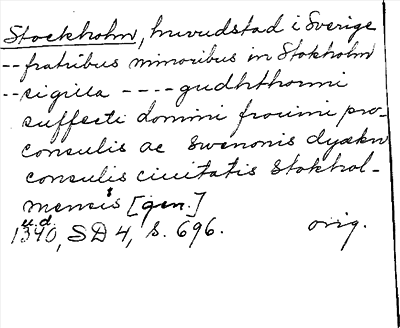 Stockholm, huvudstad i Sverige
-- fratribus minoribus in Stokholm
-- sigilla ---- gudhthormi
suffecti domini frouini pro-
consulis ac Swenonis dyækn
consulis ciuitatis Stokhol-
mensis [gen.]
u.d.
1340, SD 4, s. 696. orig.